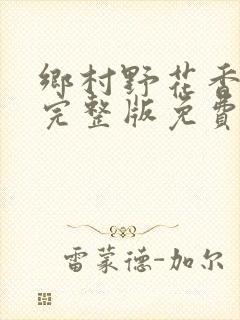 鄉村野花香
完整版免費
雷蒙德-加尔